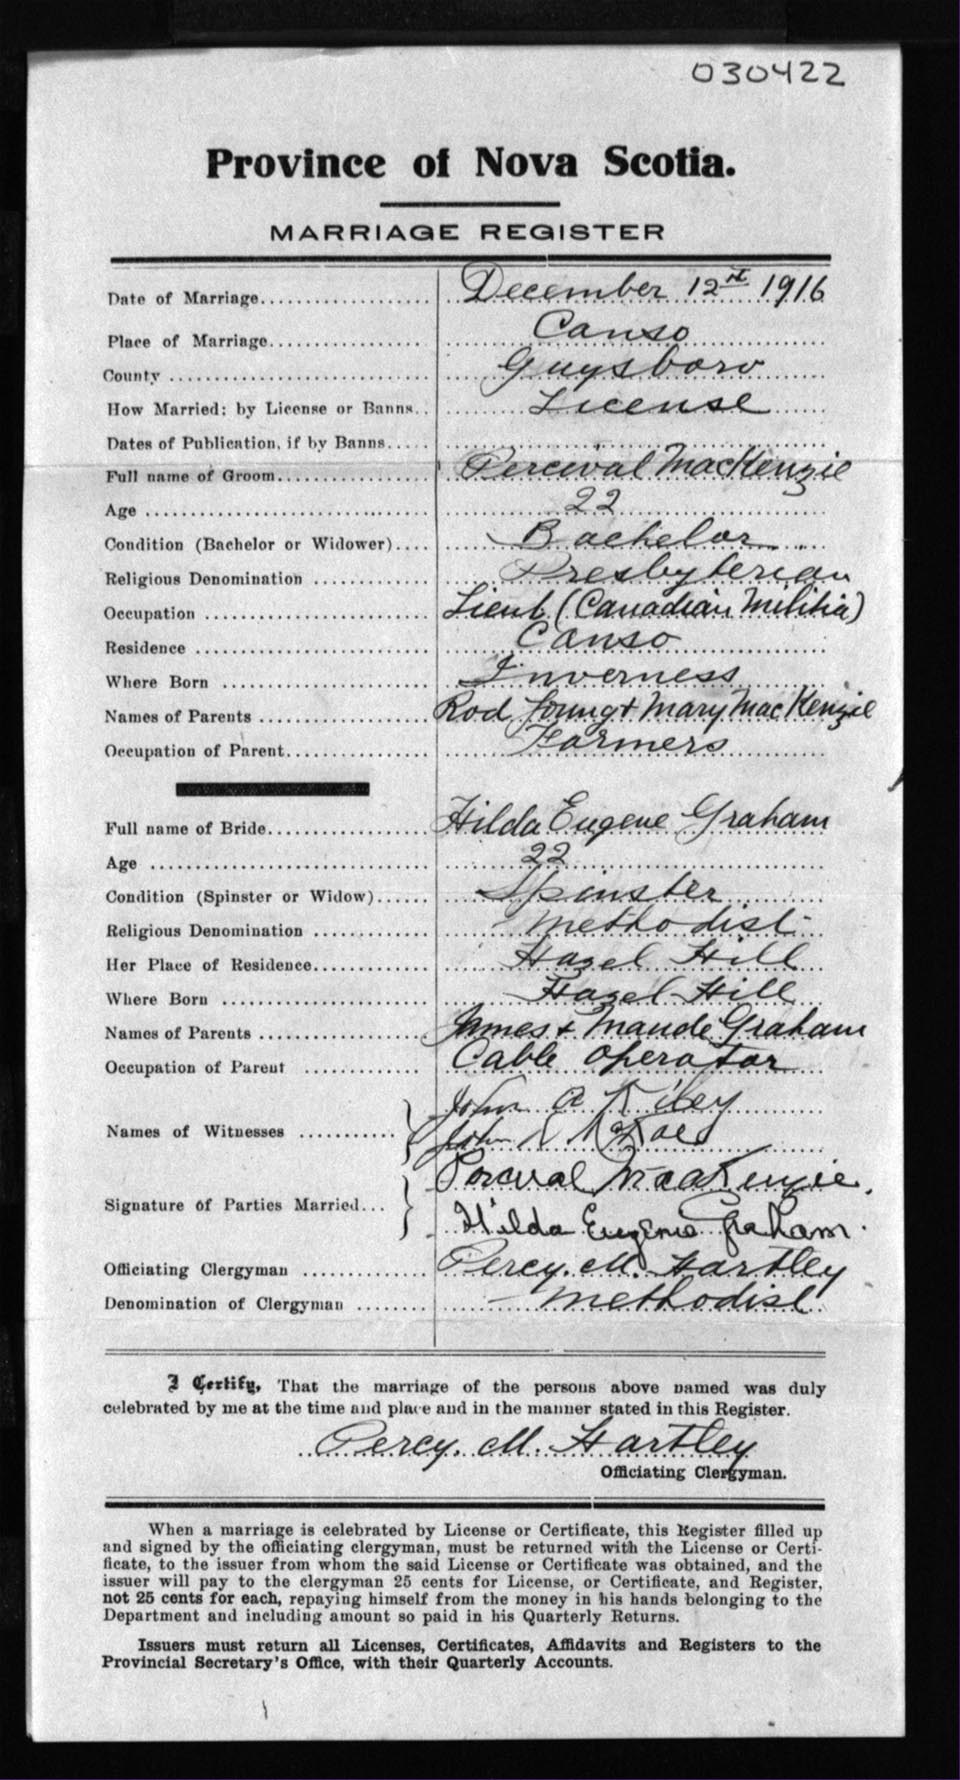 030422
Province of Nova Scotia.
MARRIAGE REGISTER
Date of Marriage.................. December 12th 1916
Place of Marriage................. Canso
County .......................... Guysboro
How Married; by License or Banns.. License
Dates of Publication, if by Banns.....
Full name of Groom................ Percival MacKenzie
Age ............................. 22
Condition (Bachelor or Widower).... Bachelor
Religious Denomination ............ Presbyterian
Occupation ....................... Lieut (Canadian Militia)
Residence ........................ Canso
Where Born ...................... Inverness
Names of Parents ................. Rod Young & Mary MacKenzie
Occupation of Parent............... Farmers
Full name of Bride................. Hilda Eugene Graham
Age ............................. 22
Condition (Spinster or Widow)...... Spinster
Religious Denomination ............ Methodist
Her Place of Residence............. Hazel Hill
Where Born ...................... Hazel Hill
Names of Parents ................. James & Maude Graham
Occupation of Parent ............ Cable operator
John A Kiley
Names of Witnesses ........... John
Signature of Parties Married... Percival MacKenzie.
Hilda Eugenie Graham.
Officiating Clergyman ............. Percy. M. Hartley
Denomination of Clergyman ........ Methodist
I Certify, That the marriage of the persons above named was duly
celebrated by me at the time and place and in the manner stated in this Register.
Percy. M. Hartley
Officiating Clergyman.
When a marriage is celebrated by License or Certificate, this Register filled up
and signed by the officiating clergyman, must be returned with the License or Certi-
ficate, to the issuer from whom the said License or Certificate was obtained, and the
issuer will pay to the clergyman 25 cents for License, or Certificate, and Register,
not 25 cents for each, repaying himself from the money in his hands belonging to the
Department and including amount so paid in his Quarterly Returns.
Issuers must return all Licenses, Certificates, Affidavits and Registers to the
Provincial Secretary's Office, with their Quarterly Accounts.